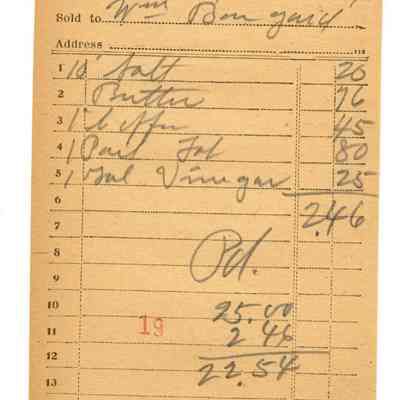 Sold to Wm Bongard
Address
1 10 Salt 20
2 Butter 76
3 1 Coffee 45
4 1 Pail 80
5 1 Gal Vinegar 25
6 2.46
7
8 Pd.
9
10 25.00
11 19 2 46
12 22.54
13